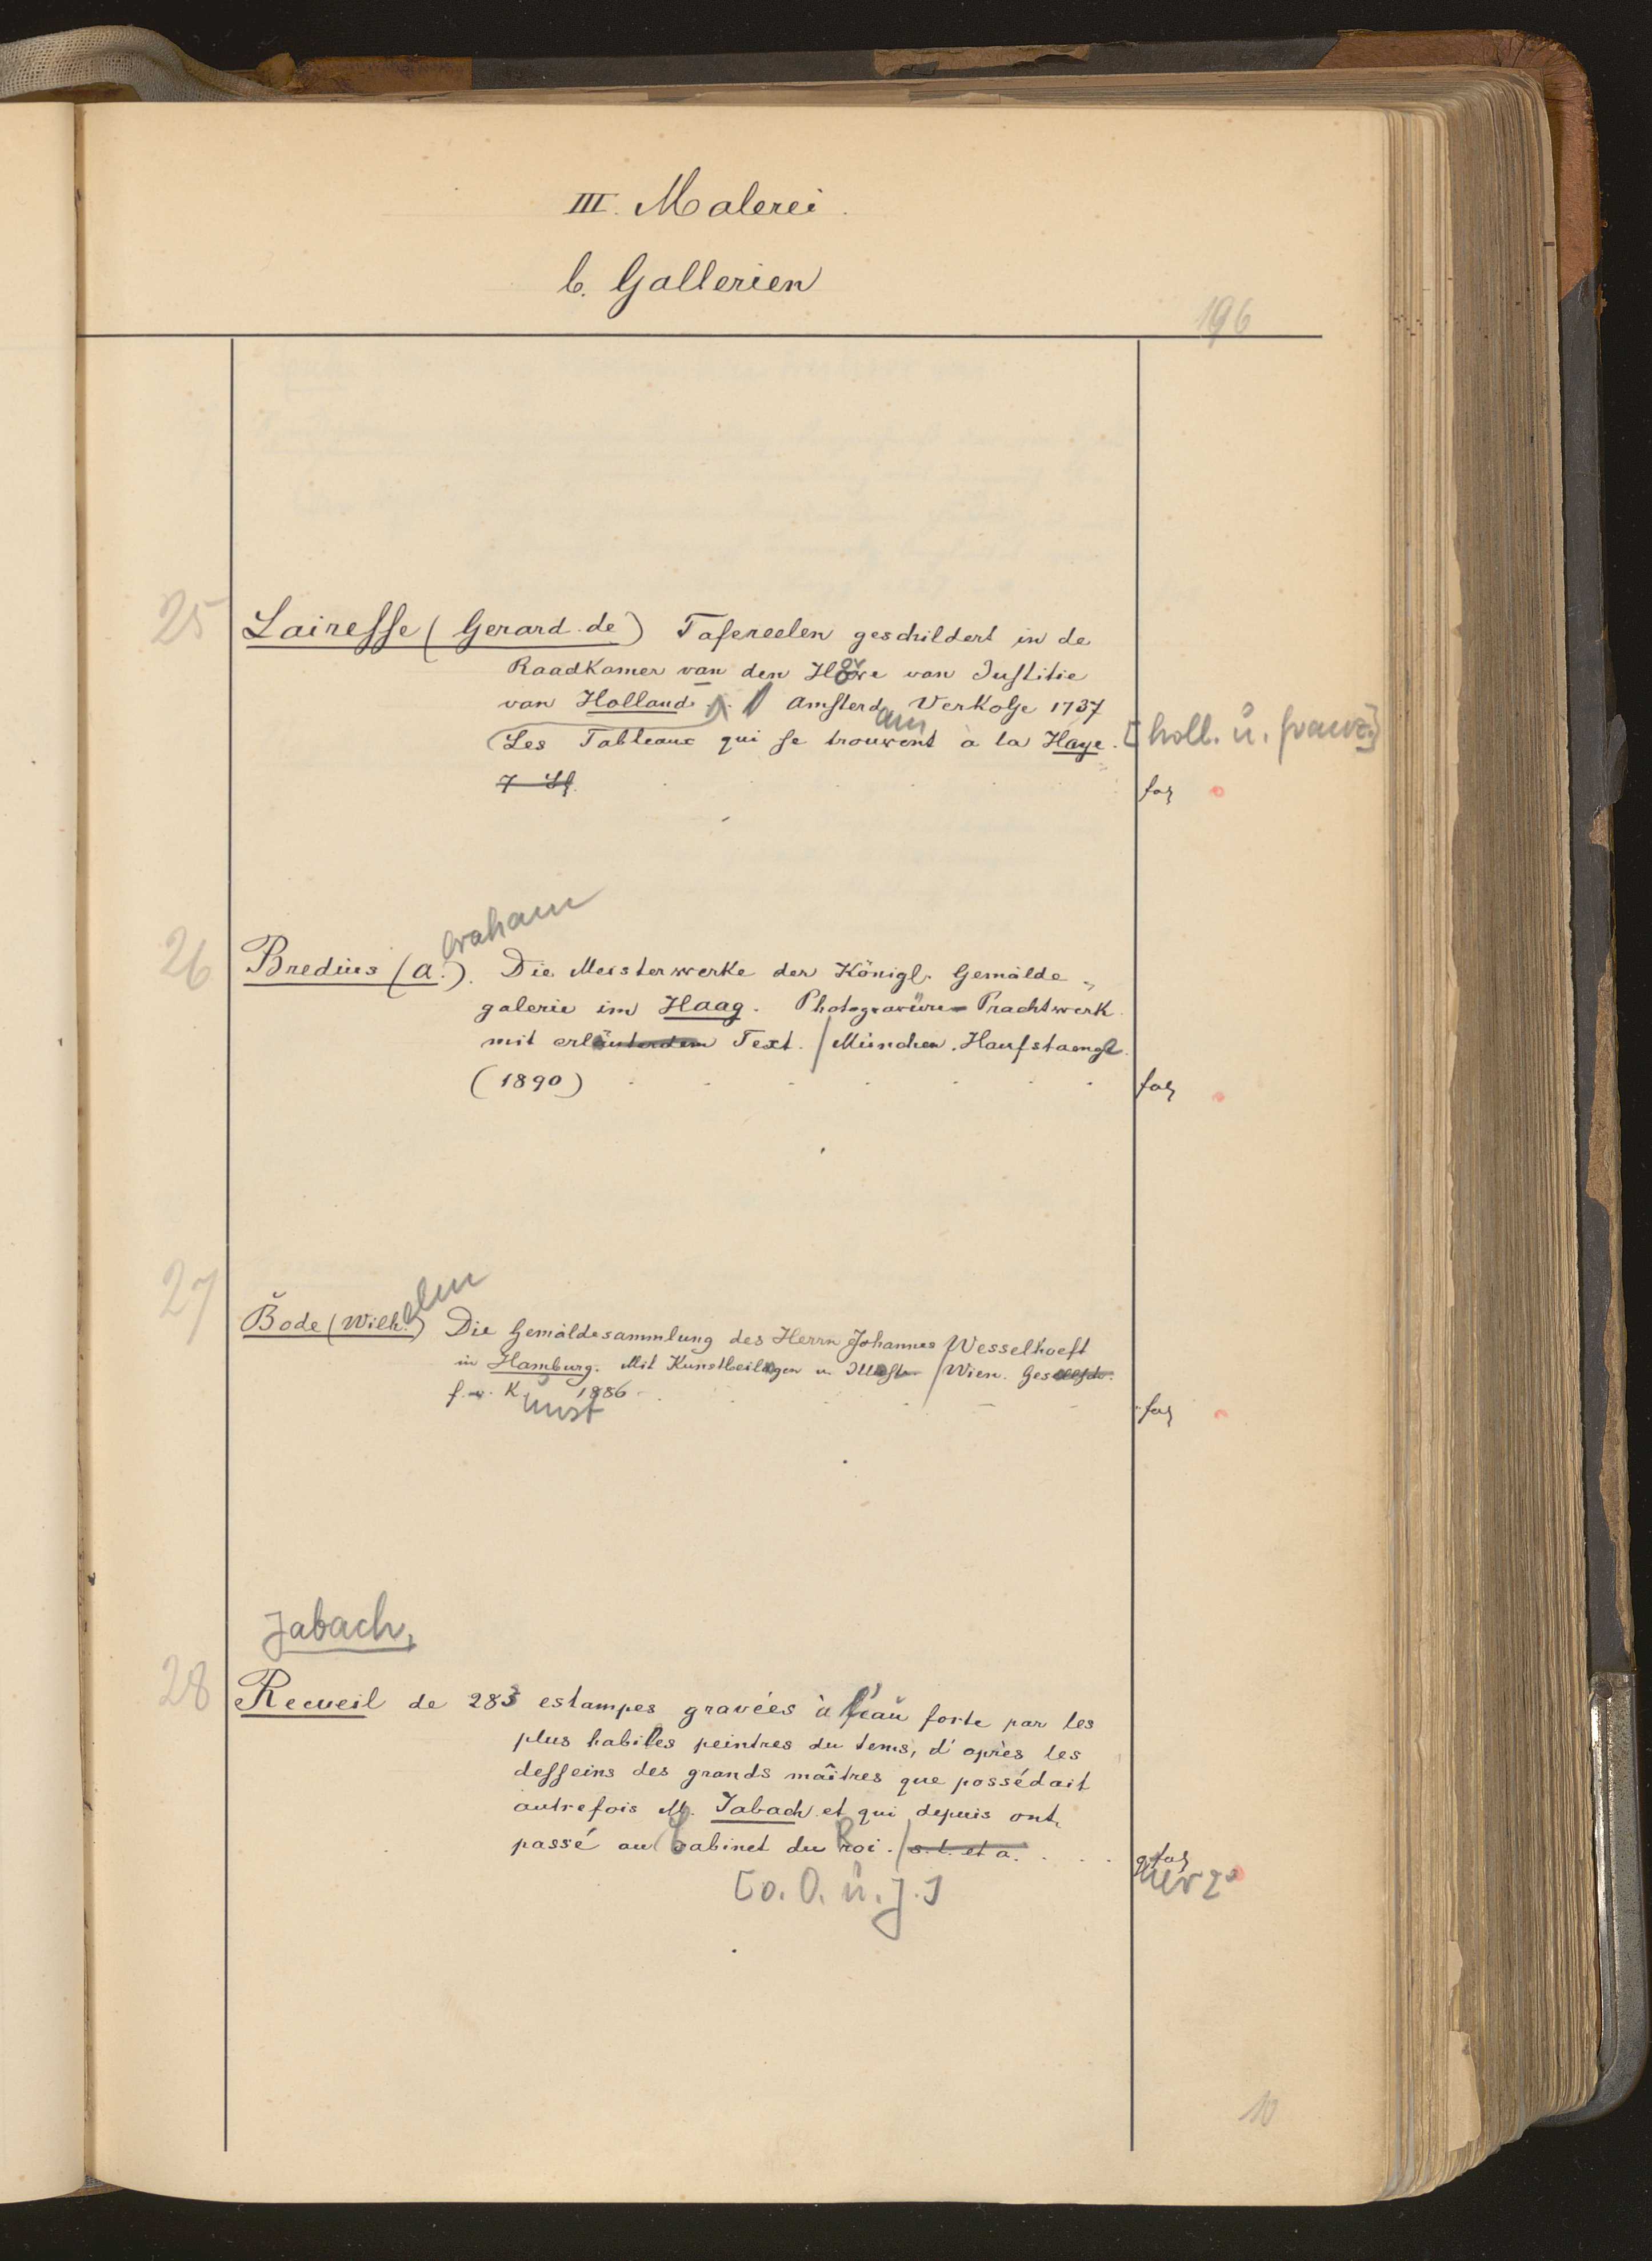 III. Malerei.
b. Gallerien
196
25 Lairesse (Gerard de) Tafereelen geschildert in de
Raadkamer van den Hove van Justitie
van Holland. Amsterdam Verkolje 1737
Les Tableaux qui se trouvent à la Haye. [holl. u. franz.]
fol
braham
26 Bredius (A.). Die Meisterwerke der Königl. Gemälde
galerie im Haag. Photogravüre Prachtwerk.
mit erläuterdem Text. / München. Hanfstaengl.
(1890) fol
27 Bode (Wilhelm) Die Gemäldesammlung des Herrn Johannes Wesselhoeft
in Hamburg. Mit Kunstbeilagen u. / Wien. Gesellsch.
f. v. Kunst 1886 fol
Jabach,
28 Recueil de 283 estampes gravées à l'eau forte par les
plus habiles peintres du tems, d'après les
desseins des grands maîtres que possédait
autrefois M. Jabach et qui depuis ont
passé au Cabinet du Roi. / s. l. et a. q. fol
[o. O. u. J.] quer 2°
10